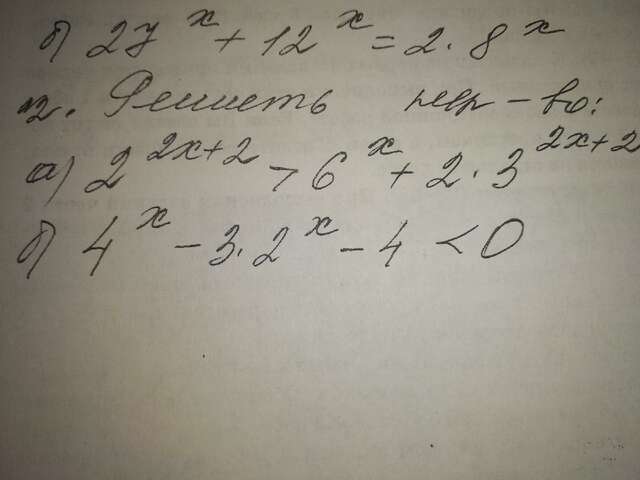 б) 27^x + 12^x = 2 · 8^x
2. Решить нер-во:
а) 2^{2x+2} > 6^x + 2 · 3^{2x+2}
б) 4^x - 3 · 2^x - 4 < 0